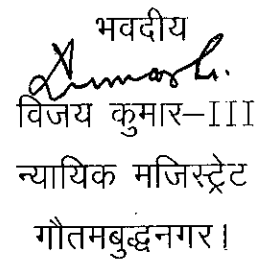 भवदीय
विजय कुमार–III
न्यायिक मजिस्ट्रेट
गौतमबुद्धनगर।